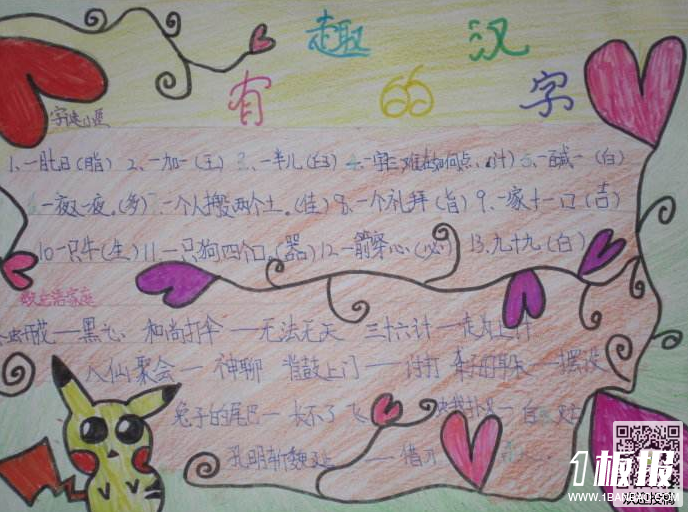 趣 汉
有 的 字
字谜小屋
1、一肚日(脂) 2、一加一(王) 3、一半儿 4、一字 (汁) 5、一百减一(白)
一夜又一夜。(多) 7、一个人搬两个土。(佳) 8、一个礼拜(旨) 9、一家十一口(吉)
10、一只牛(生) 11、一只狗四个口。(器) 12、一箭穿心(必) 13、九十九(白)
歇后语家庭
和尚打伞——无法无天 三十六计——走为上计
八仙聚会——神聊 背鼓上门——讨打
兔子的尾巴——长不了 飞
孔明斩魏延——借刀
1板报
WWW.1BANBAO.COM
欢迎投稿